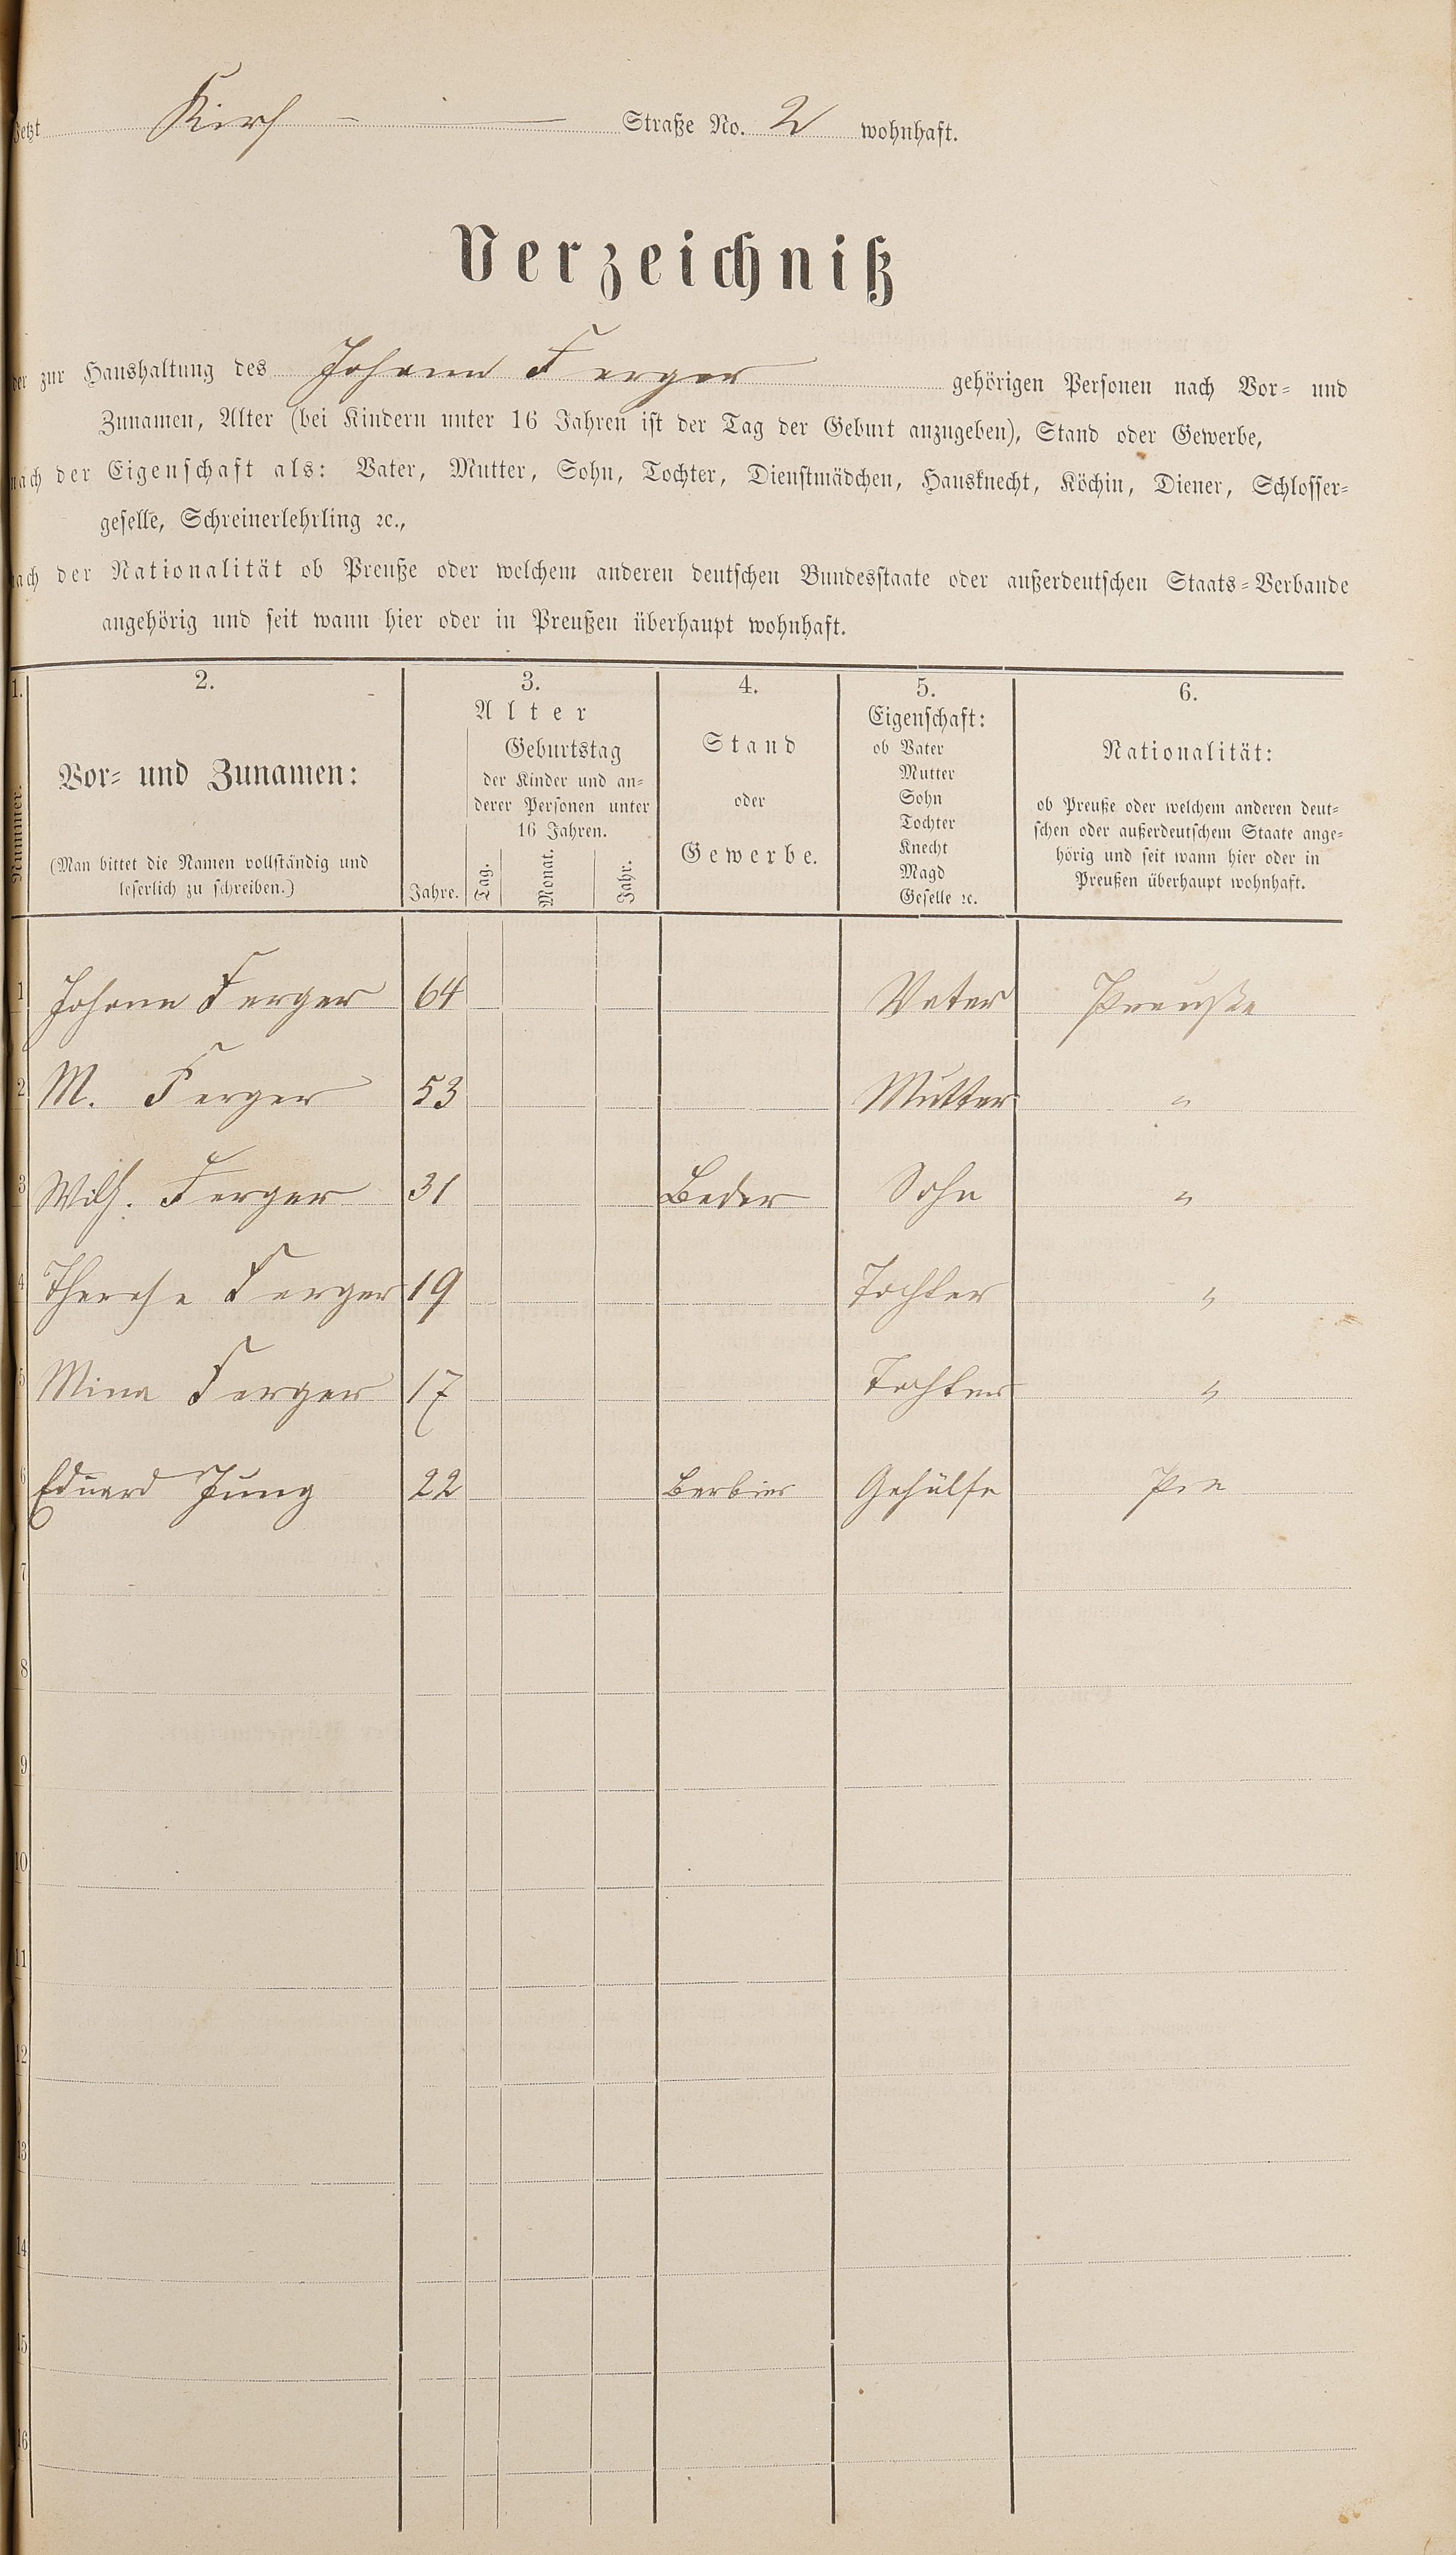 Jetzt Kirch - Straße No. 2 wohnhaft.
Verzeichniß
der zur Haushaltung des Johann Ferger gehörigen Personen nach Vor- und
Zunamen, Alter (bei Kindern unter 16 Jahren ist der Tag der Geburt anzugeben), Stand oder Gewerbe,
nach der Eigenschaft als: Vater, Mutter, Sohn, Tochter, Dienstmädchen, Hausknecht, Köchin, Diener, Schlosser-
geselle, Schreinerlehrling ꝛc.,
nach der Nationalität ob Preuße oder welchem anderen deutschen Bundesstaate oder außerdeutschen Staats-Verbande
angehörig und seit wann hier oder in Preußen überhaupt wohnhaft.
1. 2. 3. 4. 5. 6.
Nummer.
Vor- und Zunamen:
(Man bittet die Namen vollständig und
leserlich zu schreiben.)
Alter
Jahre.
Geburtstag
der Kinder und an-
derer Personen unter
16 Jahren.
Tag. Monat. Jahr.
Stand
oder
Gewerbe.
Eigenschaft:
ob Vater
Mutter
Sohn
Tochter
Knecht
Magd
Geselle ꝛc.
Nationalität:
ob Preuße oder welchem anderen deut-
schen oder außerdeutschem Staate ange-
hörig und seit wann hier oder in
Preußen überhaupt wohnhaft.
1 Johann Ferger 64 Vater Preuße
2 M. Ferger 53 Mutter "
3 Wilh. Ferger 31 Bader Sohn "
4 Therese Ferger 19 Tochter "
5 Mina Ferger 17 Tochter "
6 Eduard Jung 22 Barbier Gehülfe Pre
7
8
9
10
11
12
13
14
15
16